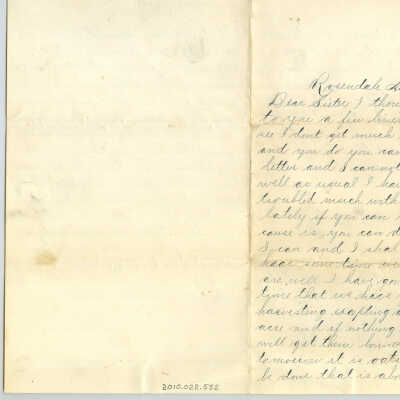 Rosendale
Dear Sister I thou
to you a few lines
see I dont get much
and you do you can
letter and I can not
well as usual I hav
troubled much with
lately if you can
cause is you can d
I can and I shal
hear some time
are well I have
time that we have
harvesting
acre and if nothing
will get there
tomorrow it is oats
be done that is abo
2010.028.552